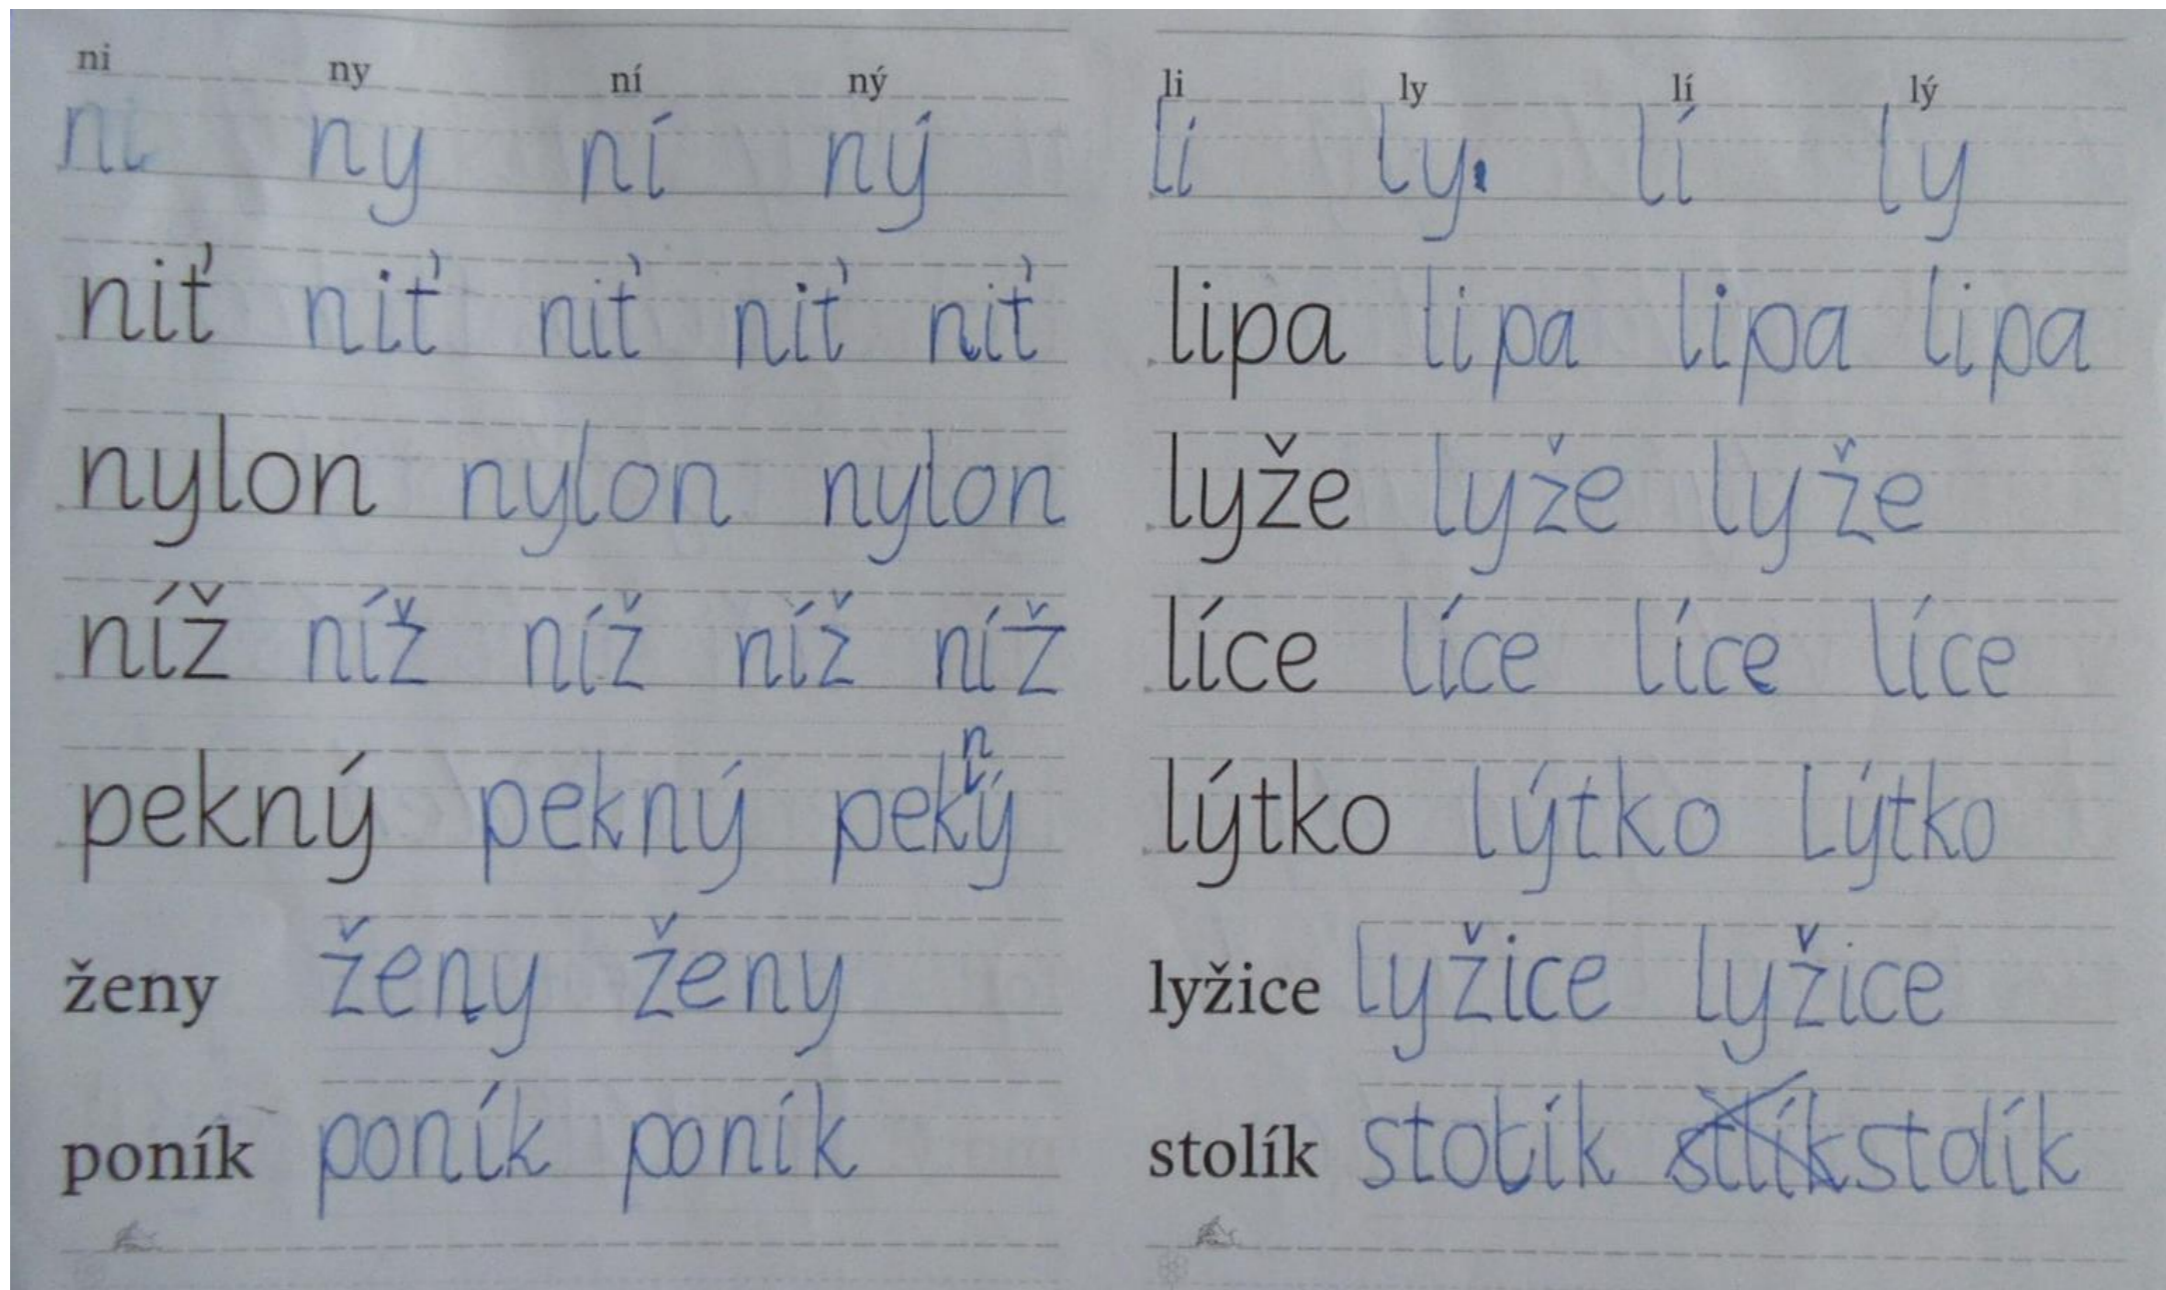 ni ny ní ný
ni ny ní ný
niť niť niť niť niť
nylon nylon nylon
níž níž níž níž níž
pekný pekný pekný
ženy ženy ženy
poník poník poník
li ly lí lý
li ly lí ly
lipa lipa lipa lipa
lyže lyže lyže
líce líce líce líce
lýtko lýtko Lýtko
lyžice lyžice lyžice
stolík stolík stlík stolík